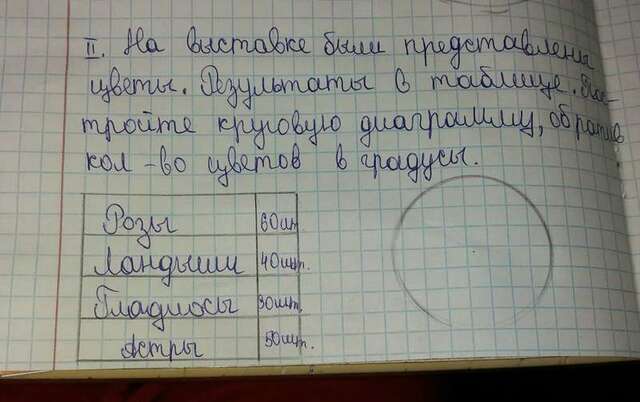 II. На выставке были представлены
цветы. Результаты в таблице. Пос-
тройте круговую диаграмму, обратив
кол-во цветов в градусы.
Розы 60шт.
Ландыши 40шт.
Гладиосы 30шт.
Астры 50шт.